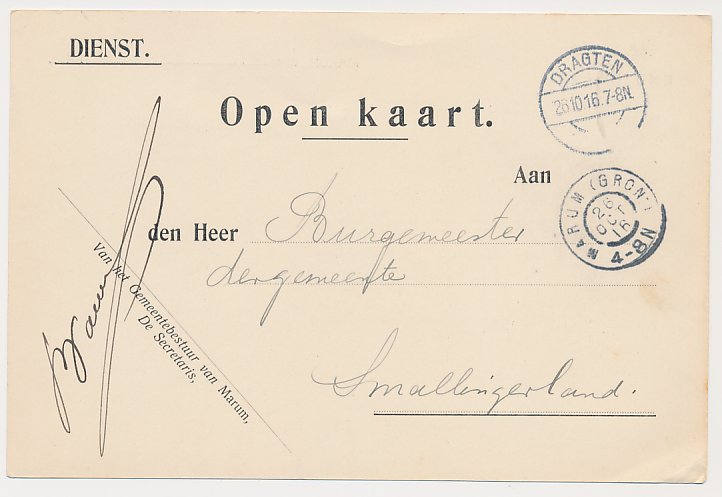 DIENST.
DRAGTEN
26 10 16. 7-8N.
Open kaart.
Aan
MARUM (GRON.)
26
OCT
16
4-8N
den Heer Burgemeester
der gemeente
Smallingerland.
Van het Gemeentebestuur van Marum,
De Secretaris,